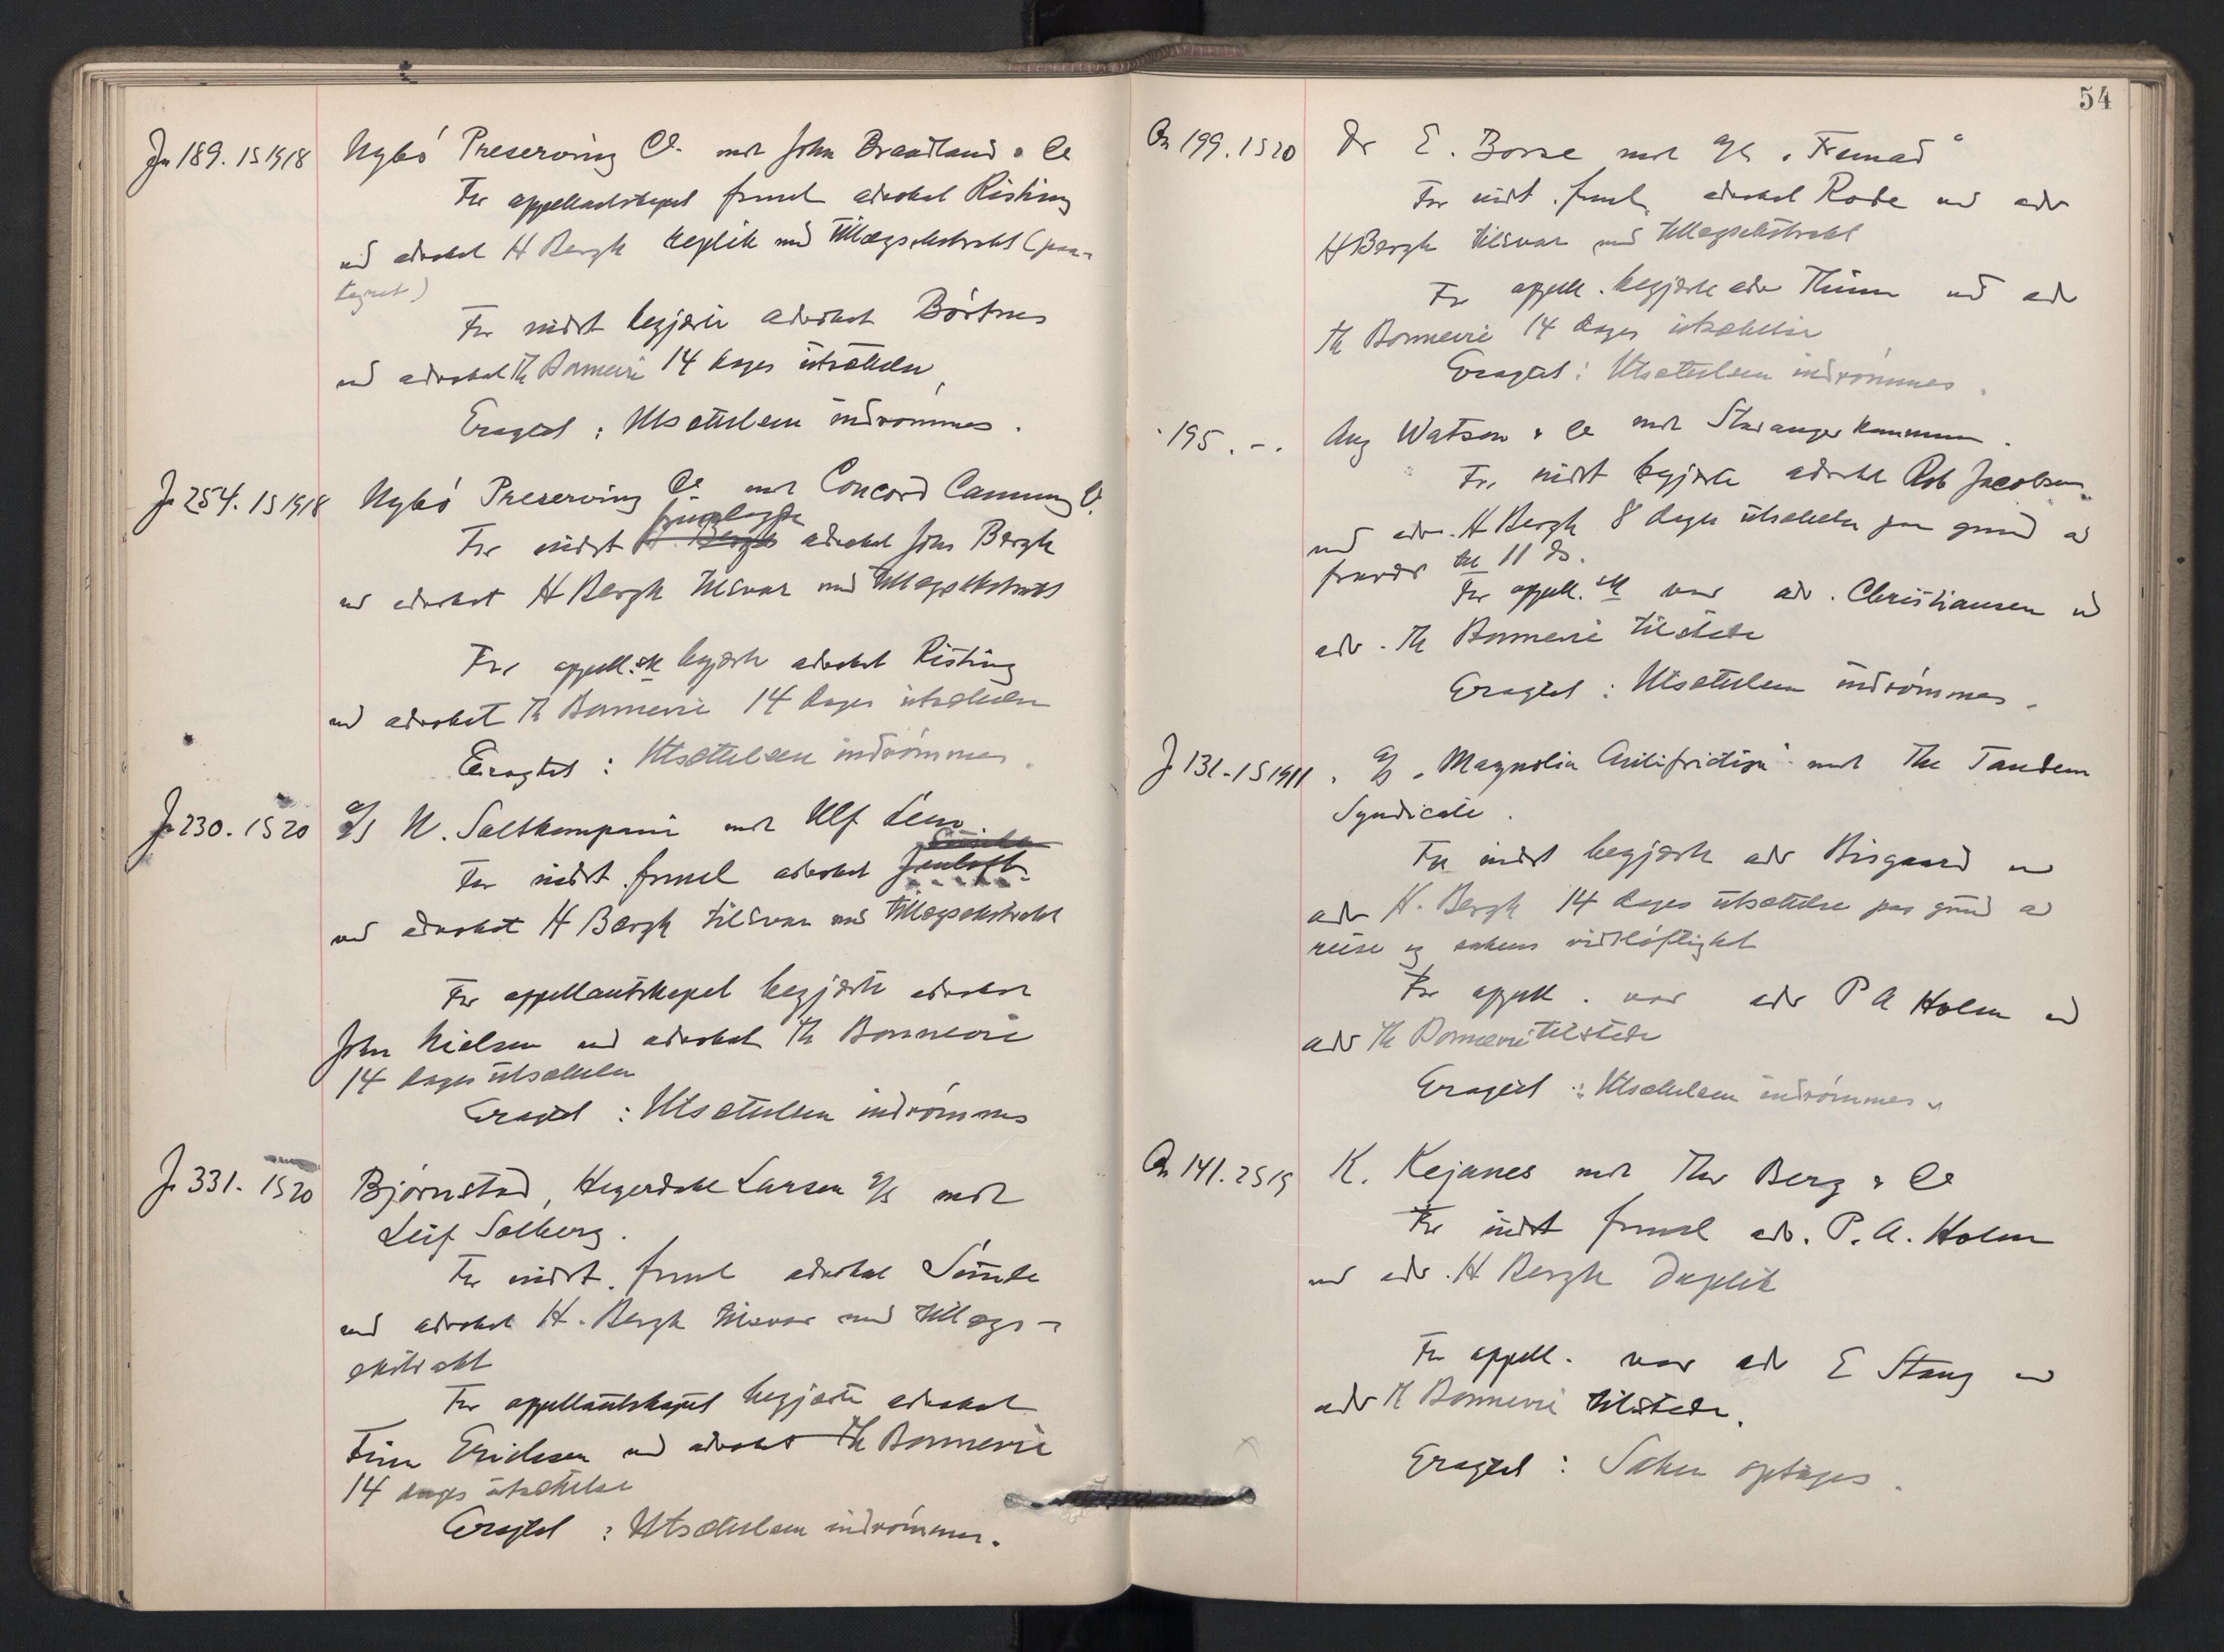 Jn 189. 1S 1918 Nybö Preserving Co. mot John Braadland & Co
For appellantskapet freml advokat Risting
ved advokat H Bergh replik med tillægsekstrakt (paa-
tegnet)
For indst begjærte advokat Börtnes
ved advokat Th Bonnevie 14 dages utsættelse,
Eragtet: Utsættelsen indrömmes.
J. 254. 1S 1918 Nybö Preserving Co mot Concord Canning Co.
fremlagde
For indst H. Bergh advokat Johs Bergh
ved advokat H Bergh tilsvar med tillægsekstrakt
For appell.sk begjærte advokat Risting
ved advokat Th Bonnevie 14 dages utsættelse
Eragtet: Utsættelsen indrömmes.
J. 230. 1S 20 A/S N. Saltkompani mot Ulf
For indst. freml advokat
ved advokat H Bergh tilsvar med tillægsekstrakt
For appellantskapet begjærte advokat
John Nielsen ved advokat Th Bonnevie
14 dages utsættelse
Eragtet: Utsættelsen indrömmes
J. 331. 1S 20 Björnstad, Hegerdahl Larsen A/S mot
Leif Solberg.
For indst. freml advokat Sunde
ved advokat H. Bergh tilsvar med tillægs-
ekstrakt
For appellantskapet begjærte advokat
Finn Erichsen ved advokat Th Bonnevie
14 dages utsættelse
Eragtet: Utsættelsen indrömmes.
54
On 199. 1S 20 Dr E. Borse mot A/S "Fremad"
For indst. freml. advokat Rode ved adv
H Bergh tilsvar med tillægsekstrakt
For appell. begjærte adv Thinn ved adv
Th Bonnevie 14 dages utsættelse
Eragtet: Utsættelsen indrömmes.
195. -. Aug Watson & Co mot Stavanger kommune.
For indst begjærte advokat Rob Jacobsen
ved adv. H Bergh 8 dages utsættelse paa grund av
fravær til 11 ds.
For appell.sk var adv. Christiansen ved
adv. Th Bonnevie tilstede
Eragtet: Utsættelsen indrömmes.
J 131-1S 1911. A/S "Magnolia Antifriction" mot The Tandem
Syndicate.
For indst begjærte adv Bisgaard ved
adv H. Bergh 14 dages utsættelse paa grund av
reise og sakens vidtlöftighet
For appell. var adv P A Holm ved
adv Th Bonnevie tilstede
Eragtet: Utsættelsen indrömmes.
On 141. 2S 19 K. Kejanes mot Thv Berg & Co
For indst freml adv. P. A. Holm
ved adv. H Bergh Duplik
For appell. var adv E Stang ved
adv Th Bonnevie tilstede.
Eragtet: Saken optages.